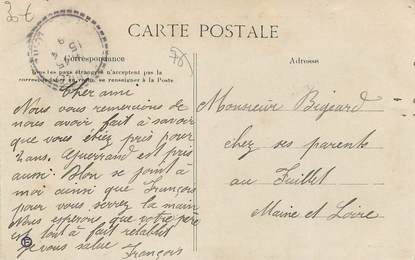 30€
CARTE POSTALE
Correspondance
Adresse
Tous les pays étrangers n'acceptent pas la
correspondance au recto, se renseigner à la Poste
Cher ami
Nous vous remercions de
nous avoir fait à savoir
que vous étiez pris pour
2 ans. Guerrand est pris
aussi. Léon se joint à
moi ainsi que François
pour vous serrez la main
Nous esperons que votre père
est tout à fait retablit
Je vous salue
François
Monsieur Bigeard
chez ses parents
au Fuillet
Maine et Loire